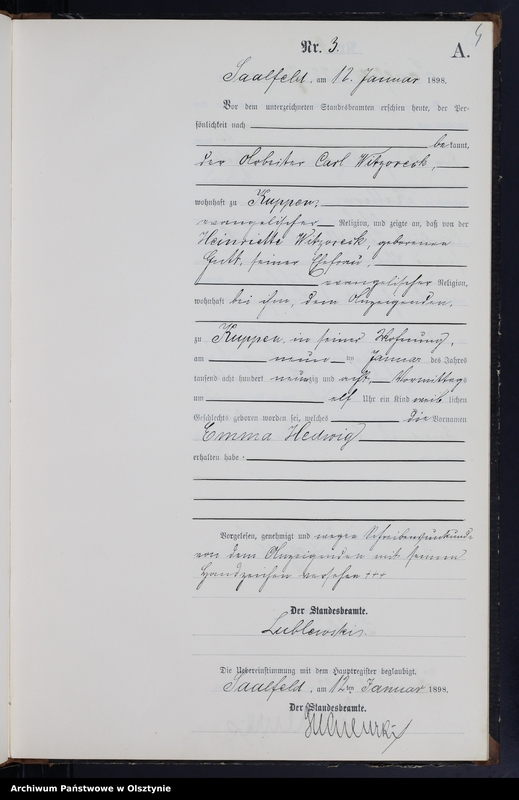 4
Nr. 3.
A.
Saalfeld, am 12. Januar 1898.
Vor dem unterzeichneten Standesbeamten erschien heute, der Per-
sönlichkeit nach
bekannt,
der Arbeiter Carl Witzoreck,
wohnhaft zu Kuppen,
evangelischer Religion, und zeigte an, daß von der
Heinriette Witzoreck, geborenen
Gutt, seiner Ehefrau,
evangelischer Religion,
wohnhaft bei ihm, dem Anzeigenden,
zu Kuppen in seiner Wohnung,
am neun ten Januar des Jahres
tausend acht hundert neunzig und acht, Vormittags
um elf Uhr ein Kind weiblichen
Geschlechts geboren worden sei, welches die Vornamen
Emma Hedwig
erhalten habe.
Vorgelesen, genehmigt und wegen Schreibensunkunde
von dem Anzeigenden mit seinem
Handzeichen versehen +++
Der Standesbeamte.
Lublewski.
Die Uebereinstimmung mit dem Hauptregister beglaubigt.
Saalfeld, am 12ten Januar 1898.
Der Standesbeamte.
Archiwum Państwowe w Olsztynie